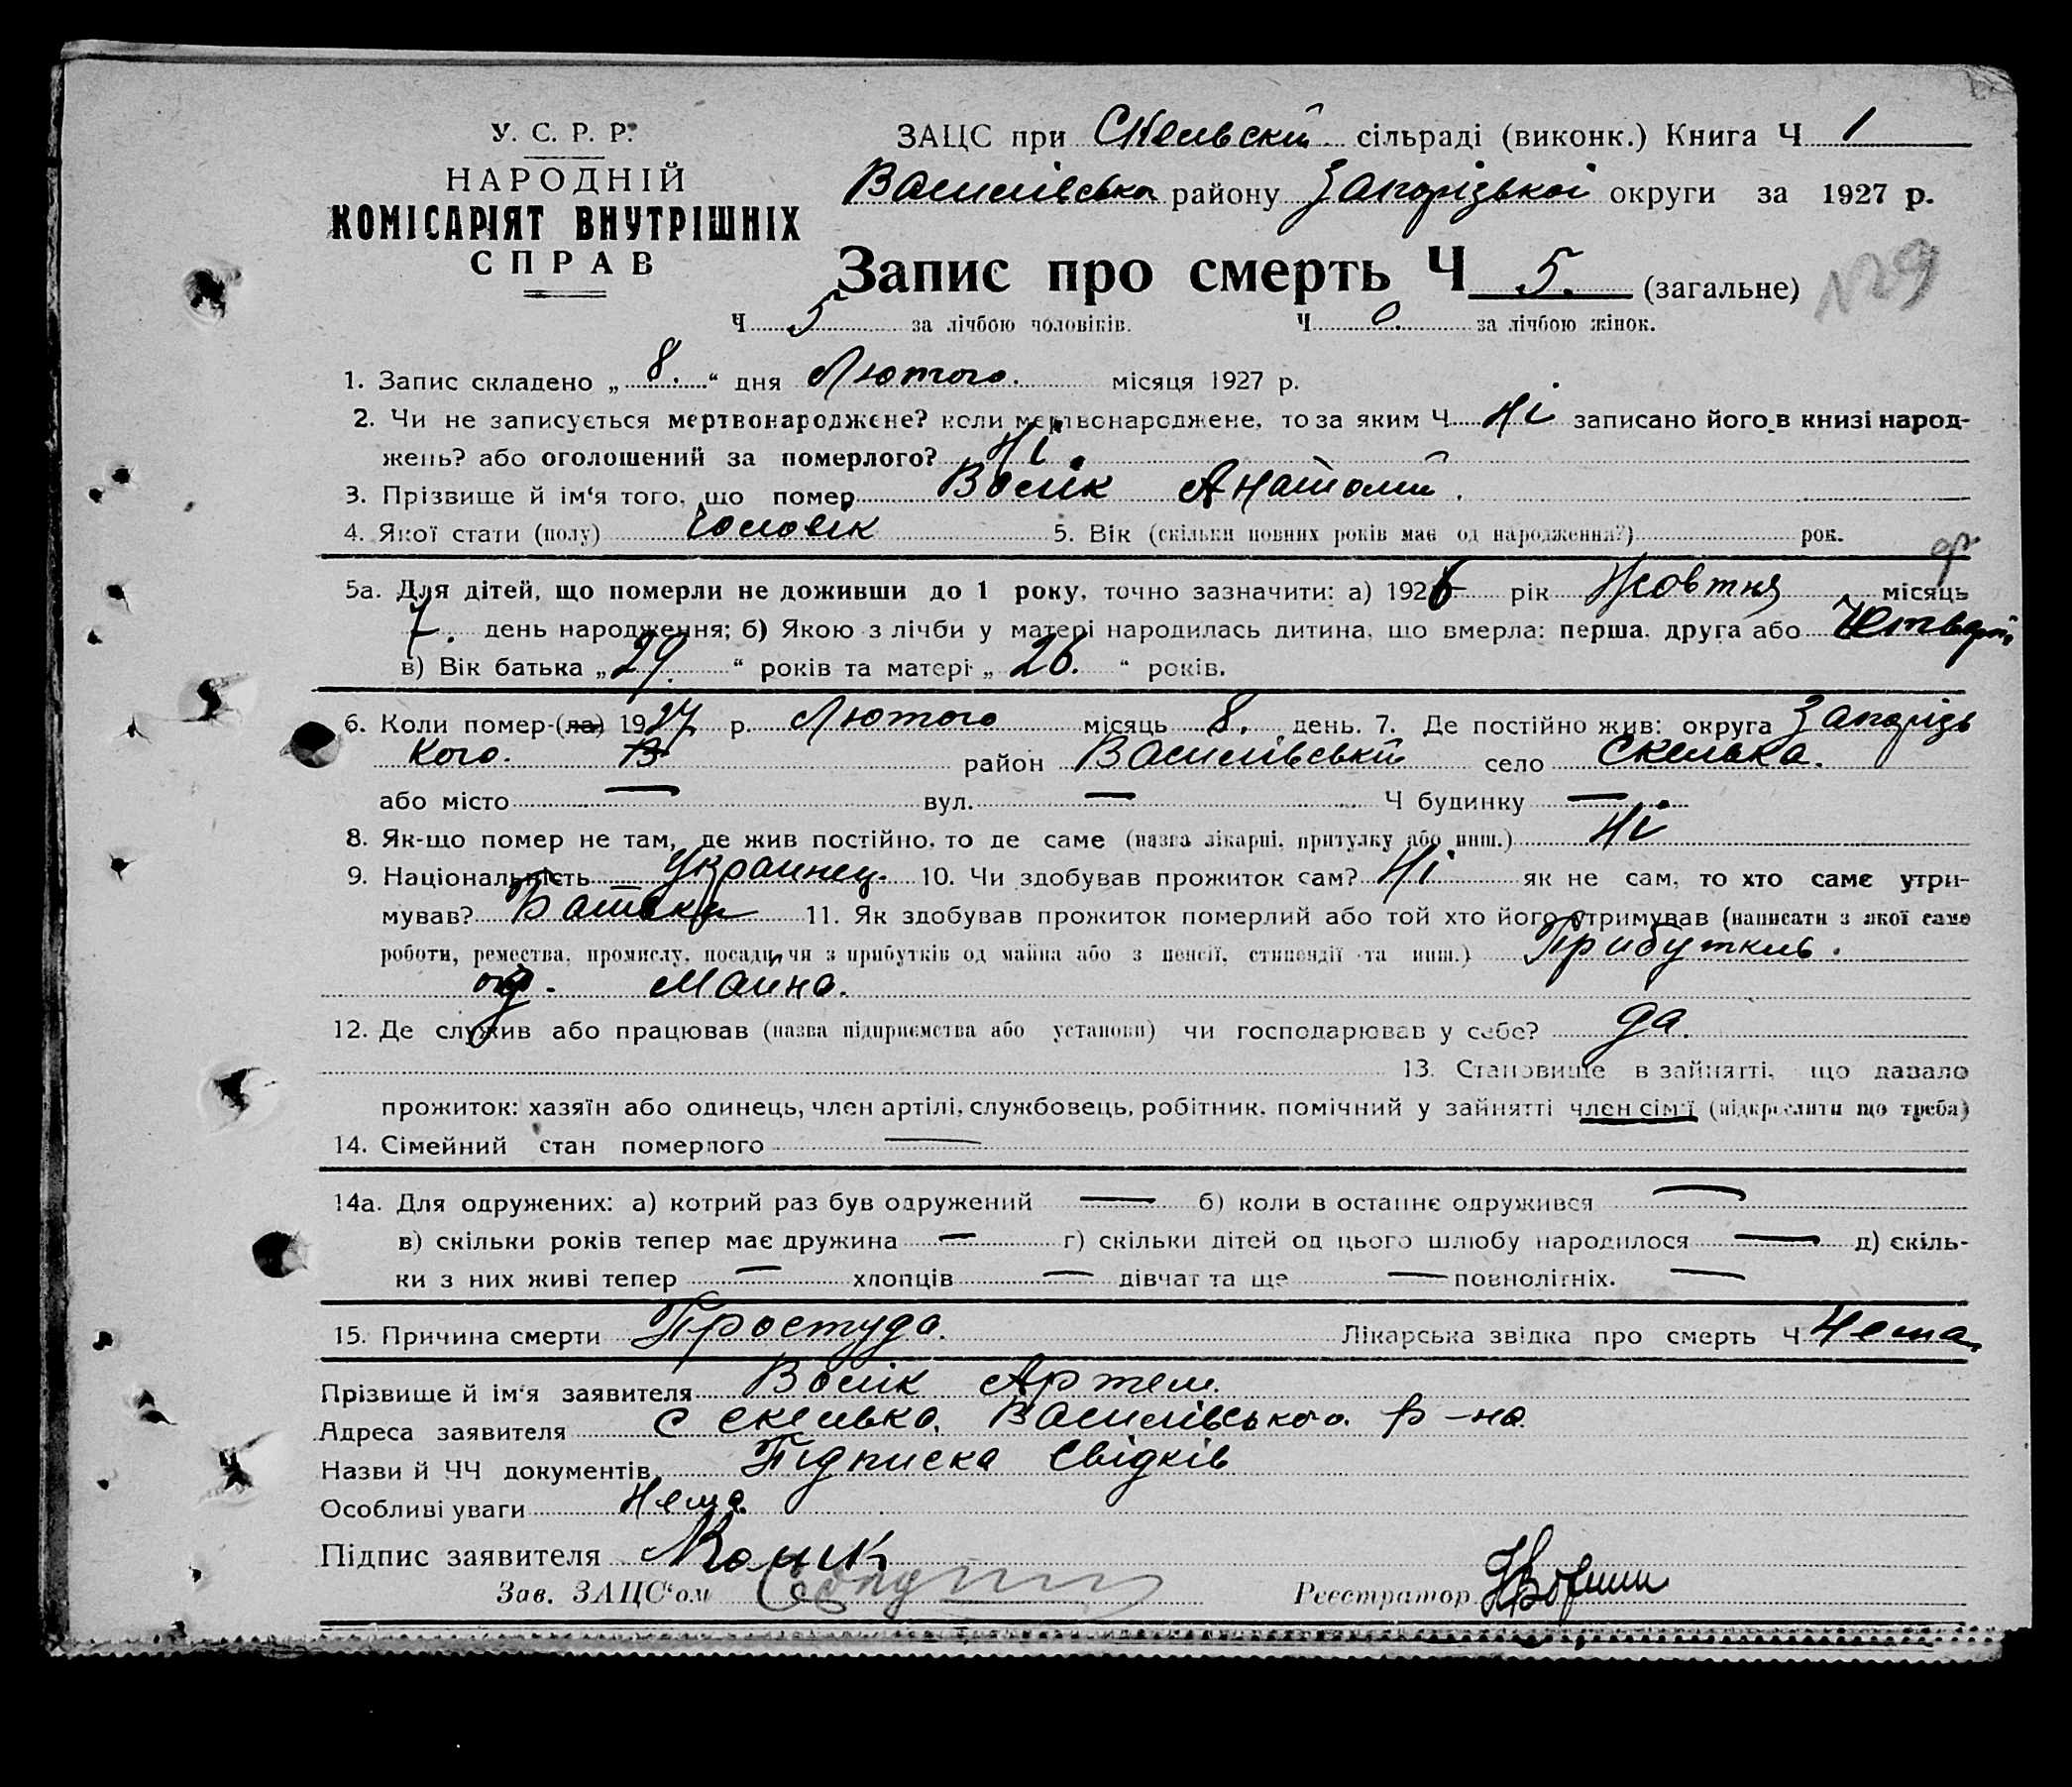 У. С. Р. Р.
НАРОДНІЙ
КОМІСАРІЯТ ВНУТРІШНІХ
СПРАВ
ЗАЦС при Скельскій сільраді (виконк.) Книга Ч 1
Василівська району Запорізької округи за 1927 р.
Запис про смерть Ч 5. (загальне) N29
Ч 5 за лічбою чоловіків. Ч 0. за лічбою жінок.
1. Запис складено „ 8. “ дня Лютого. місяця 1927 р.
2. Чи не записується мертвонароджене? коли мертвонароджене, то за яким Ч Ні записано його в книзі народ-
жень? або оголошений за померлого? Ні.
3. Прізвище й ім‘я того, що помер Волік Анатолий.
4. Якої стати (полу) Чоловік 5. Вік (скільки повних років має од народження?) рок.
5а. Для дітей, що померли не доживши до 1 року, точно зазначити: а) 1926 рік Жовтня місяць
7. день народження; б) Якою з лічби у матері народилась дитина, що вмерла: перша, друга або
в) Вік батька „ 29. “ років та матері „ 26. “ років.
6. Коли помер-(ла) 1927 р. Лютого місяць 8. день. 7. Де постійно жив: округа Запорізь
кого. В район Василівський село Скелька.
або місто — вул. — Ч будинку —
8. Як-що помер не там, де жив постійно, то де саме (назва лікарні, притулку або инш.) Ні
9. Національність Украинец. 10. Чи здобував прожиток сам? Ні як не сам, то хто саме утри-
мував? Батька 11. Як здобував прожиток померлий або той хто його утримував (написати з якої саме
роботи, ремества, промислу, посади, чи з прибутків од майна або з пенсії, стипендії та инш.) Прибутків.
од. Маина.
12. Де служив або працював (назва підприємства або установи) чи господарював у себе? да.
13. Становище в зайнятті, що давало
прожиток: хазяїн або одинець, член артілі, службовець, робітник, помічний у зайнятті член сім‘ї (підкреслити що треба)
14. Сімейний стан померлого —
14а. Для одружених: а) котрий раз був одружений — б) коли в останнє одружився —
в) скільки років тепер має дружина — г) скільки дітей од цього шлюбу народилося — д) скіль-
ки з них живі тепер — хлопців — дівчат та ще — повнолітніх. —
15. Причина смерти Простуда. Лікарська звідка про смерть Ч Нема.
Прізвище й ім‘я заявителя Волік Артем.
Адреса заявителя с Скелька. Василівського. р-на
Назви й ЧЧ документів Підписка Свідків
Особливі уваги Нема.
Підпис заявителя Волик
Зав. ЗАЦС‘ом
Реєстратор